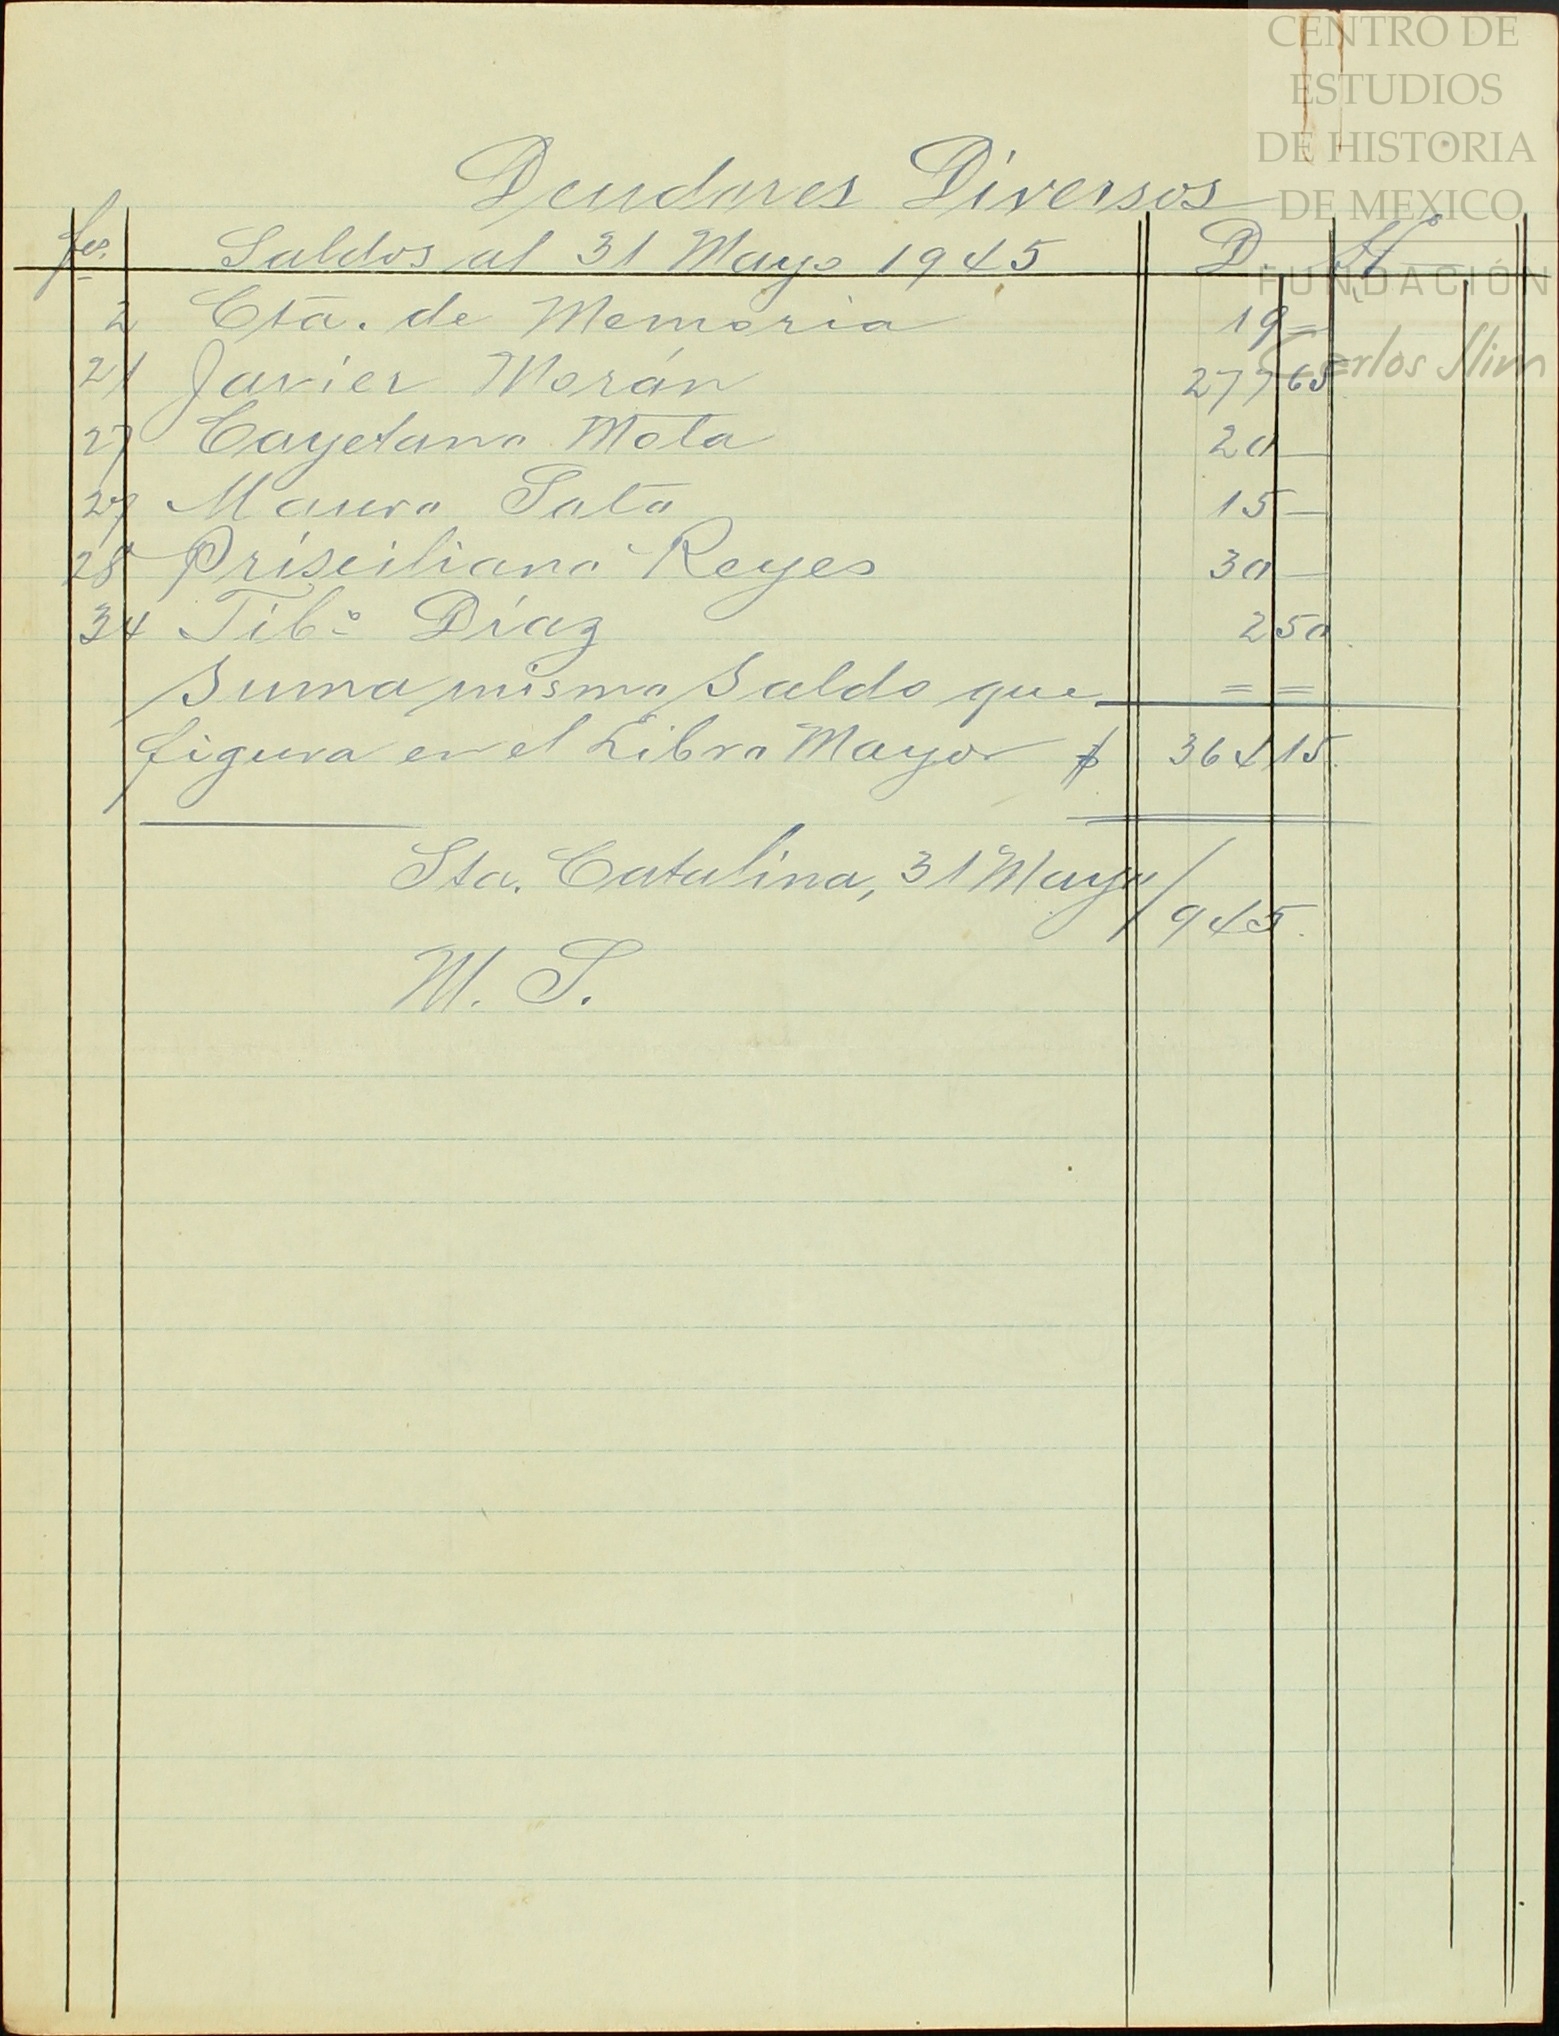 CENTRO DE
ESTUDIOS
DE HISTORIA
DE MEXICO
FUNDACIÓN
Carlos Slim
Deudores Diversos
fos. Saldos al 31 Mayo 1945 D. H.
2 Cta. de Memoria 19 =
21 Javier Morán 277 65
27 Cayetano Mota 20 —
27 Mauro Soto 15 —
28 Prisciliano Reyes 30 —
34 Tibº Díaz 2 50
Suma mismo Saldo que = =
figura en el Libro Mayor $ 364 15.
Sta. Catalina, 31 Mayo/945.
M. S.